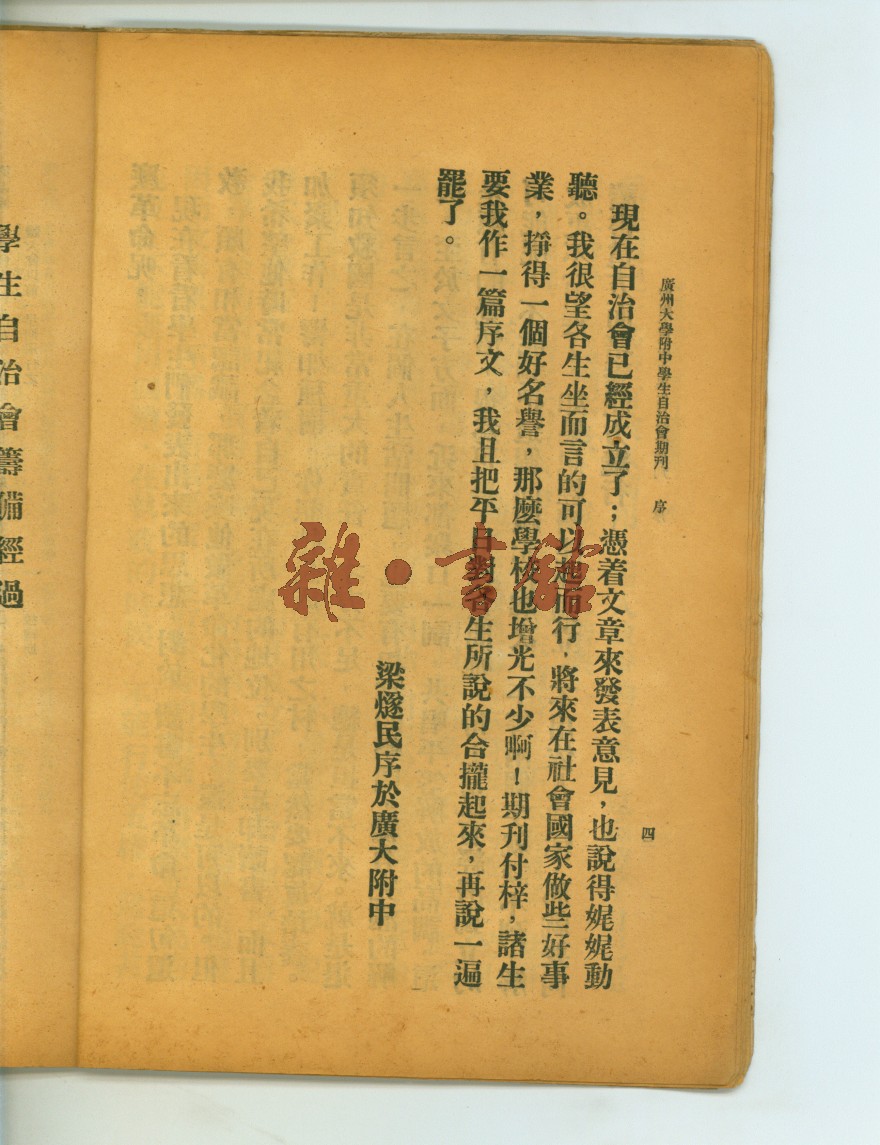 廣州大學附中學生自治會期刊　序
四
現在自治會已經成立了；憑着文章來發表意見，也說得娓娓動
聽。我很望各生坐而言的可以起而行，將來在社會國家做些好事
業，掙得一個好名譽，那麽學校也增光不少啊！期刊付梓，諸生
要我作一篇序文，我且把平日對各生所說的合攏起來，再說一遍
罷了。
梁燧民序於廣大附中
學生自治會籌備經過
雜・書館